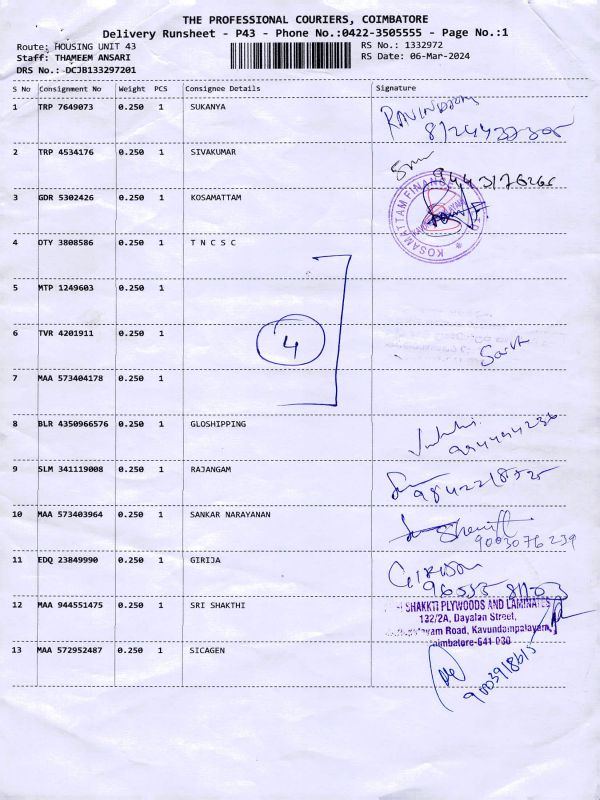 THE PROFESSIONAL COURIERS, COIMBATORE
Delivery Runsheet - P43 - Phone No.:0422-3505555 - Page No.:1
Route: HOUSING UNIT 43
Staff: THAMEEM ANSARI
DRS No.: DCJB133297201
RS No.: 1332972
RS Date: 06-Mar-2024
S No Consignment No Weight PCS Consignee Details Signature
1 TRP 7649073 0.250 1 SUKANYA
2 TRP 4534176 0.250 1 SIVAKUMAR
3 GDR 5302426 0.250 1 KOSAMATTAM
KOSAMATTAM FINANCE
4 OTY 3808586 0.250 1 T N C S C
5 MTP 1249603 0.250 1
6 TVR 4201911 0.250 1
4
7 MAA 573404178 0.250 1
8 BLR 4350966576 0.250 1 GLOSHIPPING
9 SLM 341119008 0.250 1 RAJANGAM
10 MAA 573403964 0.250 1 SANKAR NARAYANAN
9003076239
11 EDQ 23849990 0.250 1 GIRIJA
12 MAA 944551475 0.250 1 SRI SHAKTHI
SHAKKTI PLYWOODS AND LAMINATES
132/2A, Dayalan Street,
Road, Kavundampalayam,
13 MAA 572952487 0.250 1 SICAGEN